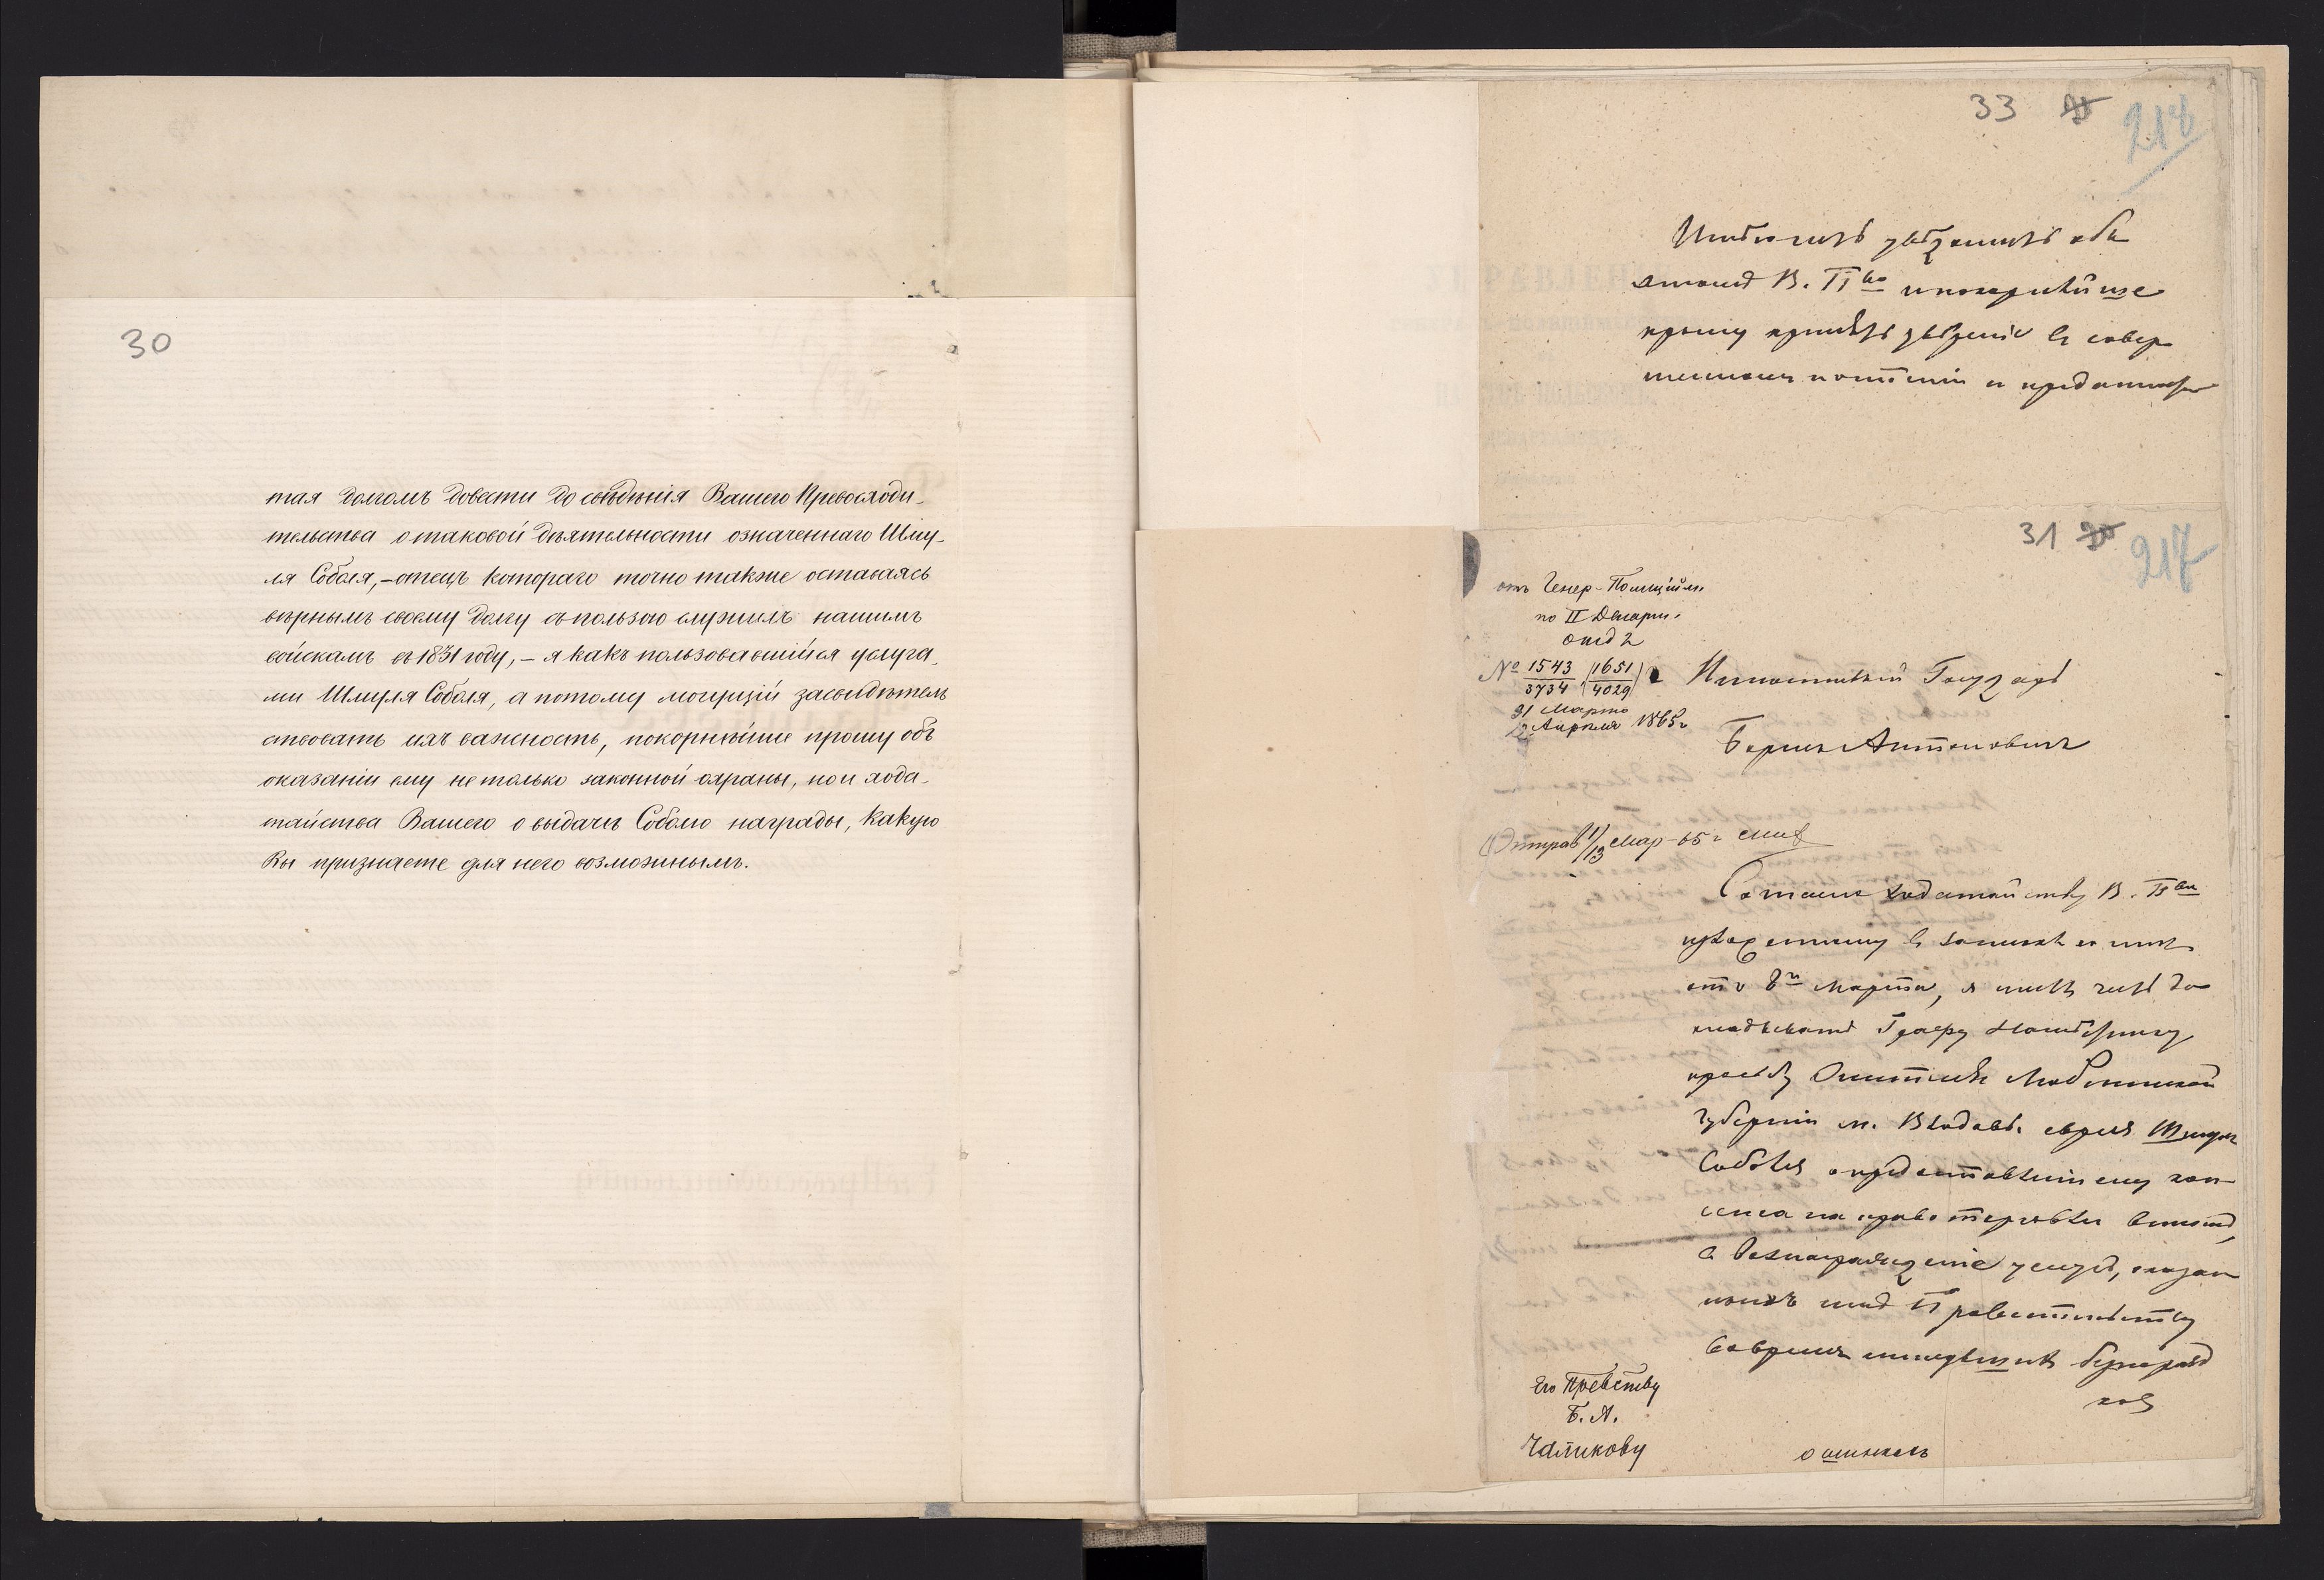 30
тая долгомъ довести до свѣдѣнія Вашего Превосходи-
тельства о таковой дѣятельности означеннаго Шму-
ля Соболя,-отецъ котораго точно также оставаясь
вѣрнымъ своему долгу съ пользою служилъ нашимъ
войскамъ въ 1831 году, - я какъ пользовавшійся услуга-
ми Шмуля Соболя, а потому могущій засвидѣтель
ствовать ихъ важность, покорнѣйше прошу объ
оказаніи ему не только законной охраны, но и хода-
тайства Вашего о выдачѣ Соболю награды, какую
Вы признаете для него возможнымъ.
33
218
В. Пво покорнѣйше
прошу принять увѣреніе въ совер
шенномъ почтеніи и преданности
31
217
отъ Генер-Полиційм.
по II Департ.
отд 2
№ 1543/3734 (1651/4029)
31 Марта
2 Апрѣля 1865 г
Милостивый Государь
Борисъ Антоновичъ
Отправ 1/13 Мар-65 г
Согласно ходатайству В. Пва
изложенному въ запискѣ ко мнѣ
отъ 8го Марта, я имѣлъ честь до
кладывать Графу Намѣстнику
просьбу Люблинской
губерніи м. Влодавы еврея Шмуля
Соболя о предоставленіи ему кон
сенса на право торговли виномъ,
въ вознагражденіе услугъ, оказан
ныхъ имъ Правительству
во время минувшихъ безпоряд
ковъ
Его Превству
Б. А.
Чаликову